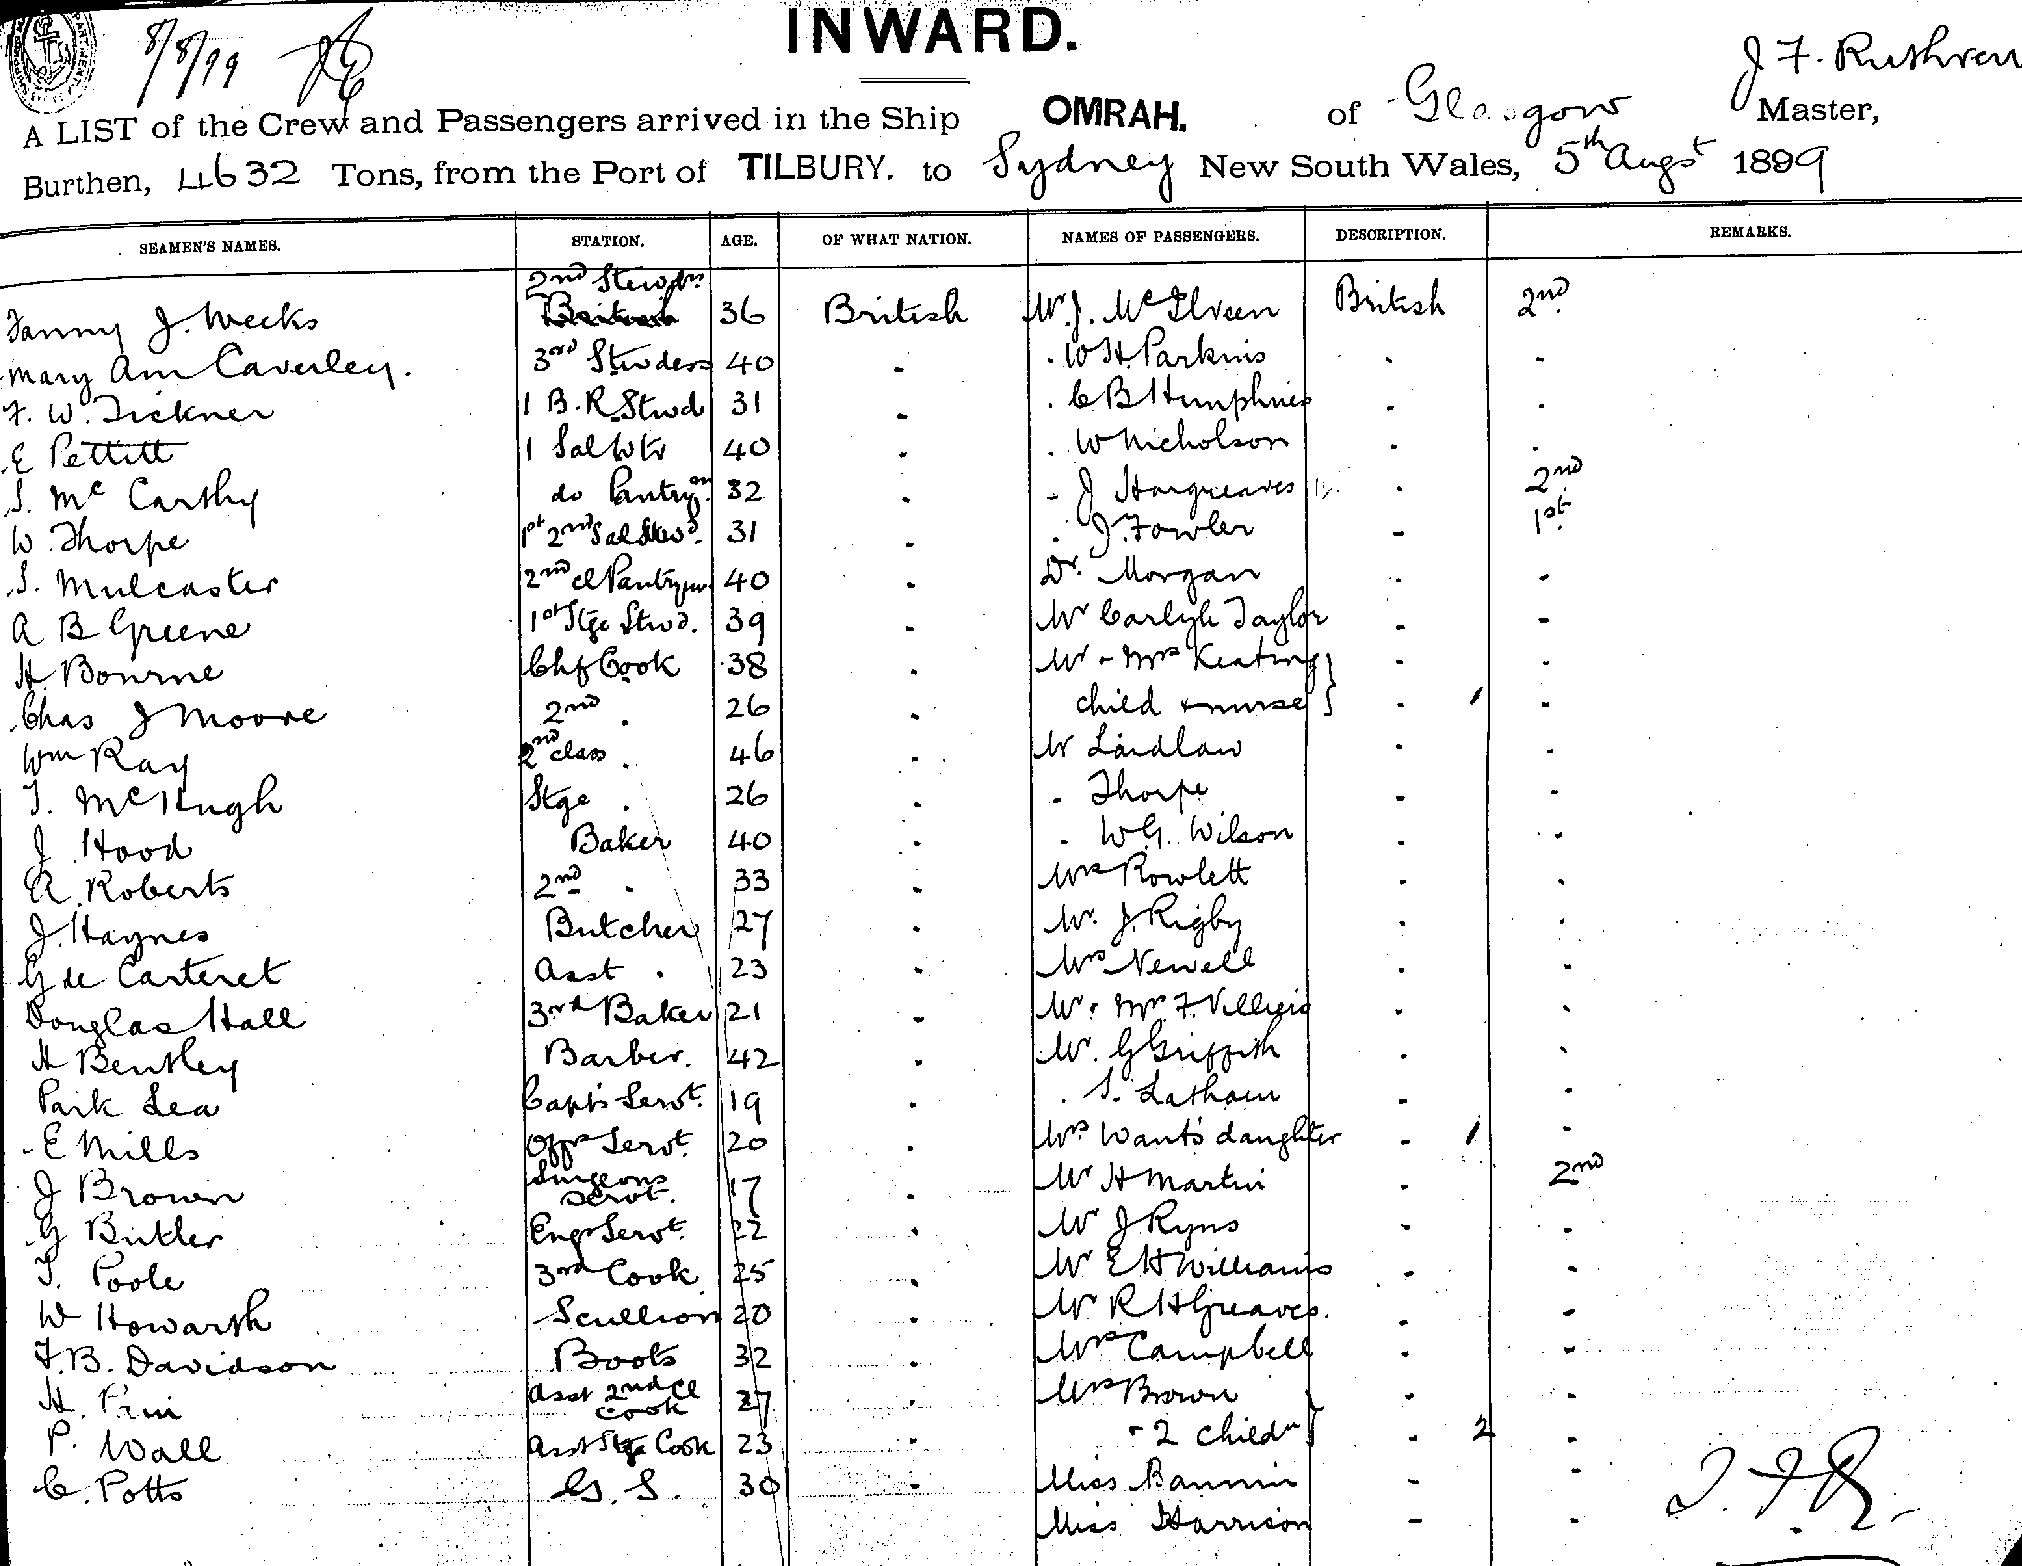 INWARD.
8/8/99
J. F. Ruthven
A LIST of the Crew and Passengers arrived in the Ship OMRAH. of Glasgow Master,
Burthen, 4632 Tons, from the Port of TILBURY. to Sydney New South Wales, 5th Augst 1899
SEAMEN'S NAMES. STATION. AGE. OF WHAT NATION. NAMES OF PASSENGERS. DESCRIPTION. REMARKS.
2nd Stewdss
Fanny J. Weeks British 36 British Mr. J. McIlveen British 2nd
Mary Ann Caverley. 3rd Stewdess 40 " . W H Parkins " "
F. W. Tickner 1 B. R. Stwd 31 " . C B Humphries " "
E Pettitt 1 Sal Wtr 40 " . W Nicholson " "
S. McCarthy do Pantrymn 32 " " J Hargreaves " 2nd
W. Thorpe 1st 2nd Sal Stwd. 31 " . J. Fowler " 1st
S. Mulcaster 2nd cl Pantryman 40 " Dr. Morgan " "
A B Greene 1st Stge Stwd. 39 " Mr Carlyle Taylor " "
H. Bourne Chf Cook 38 " Mr & Mrs Keating } " "
Chas J Moore 2nd " 26 " child & nurse } " 1 "
Wm Ray 2nd class " 46 " Mr Laidlaw " "
T. McHugh Stge " 26 " " Thorpe " "
J. Hood Baker 40 " " W G. Wilson " "
A. Roberts 2nd " 33 " Mrs Rowlett " "
J. Haynes Butcher 27 " Mr. J. Rigby " "
G de Carteret Asst " 23 " Mrs Newell " "
Douglas Hall 3rd Baker 21 " Mr & Mrs F. Villiers " "
H Bentley Barber. 42 " Mr. G Griffith " "
Park Lea Capt's Servt. 19 " " S. Latham " "
E Mills Offrs Servt. 20 " Mrs Want's daughter " 1 "
J Brown Surgeons Servt. 17 " Mr H Martin " 2nd
G Butler Engr Servt. 22 " Mr J Ryns " "
T. Poole 3rd Cook 25 " Mr E H Williams " "
W Howarth Scullion 20 " Mr R H Greaves. " "
F. B. Davidson Boots 32 " Mrs Campbell " "
H. Asst 2nd Cl Cook 27 " Mrs Brown } " "
P. Wall Asst Stge Cook 23 " " 2 childn } " 2 "
C. Potts G. S. 30 " Miss Bannin " "
Miss Harrison " "
J. F. R.